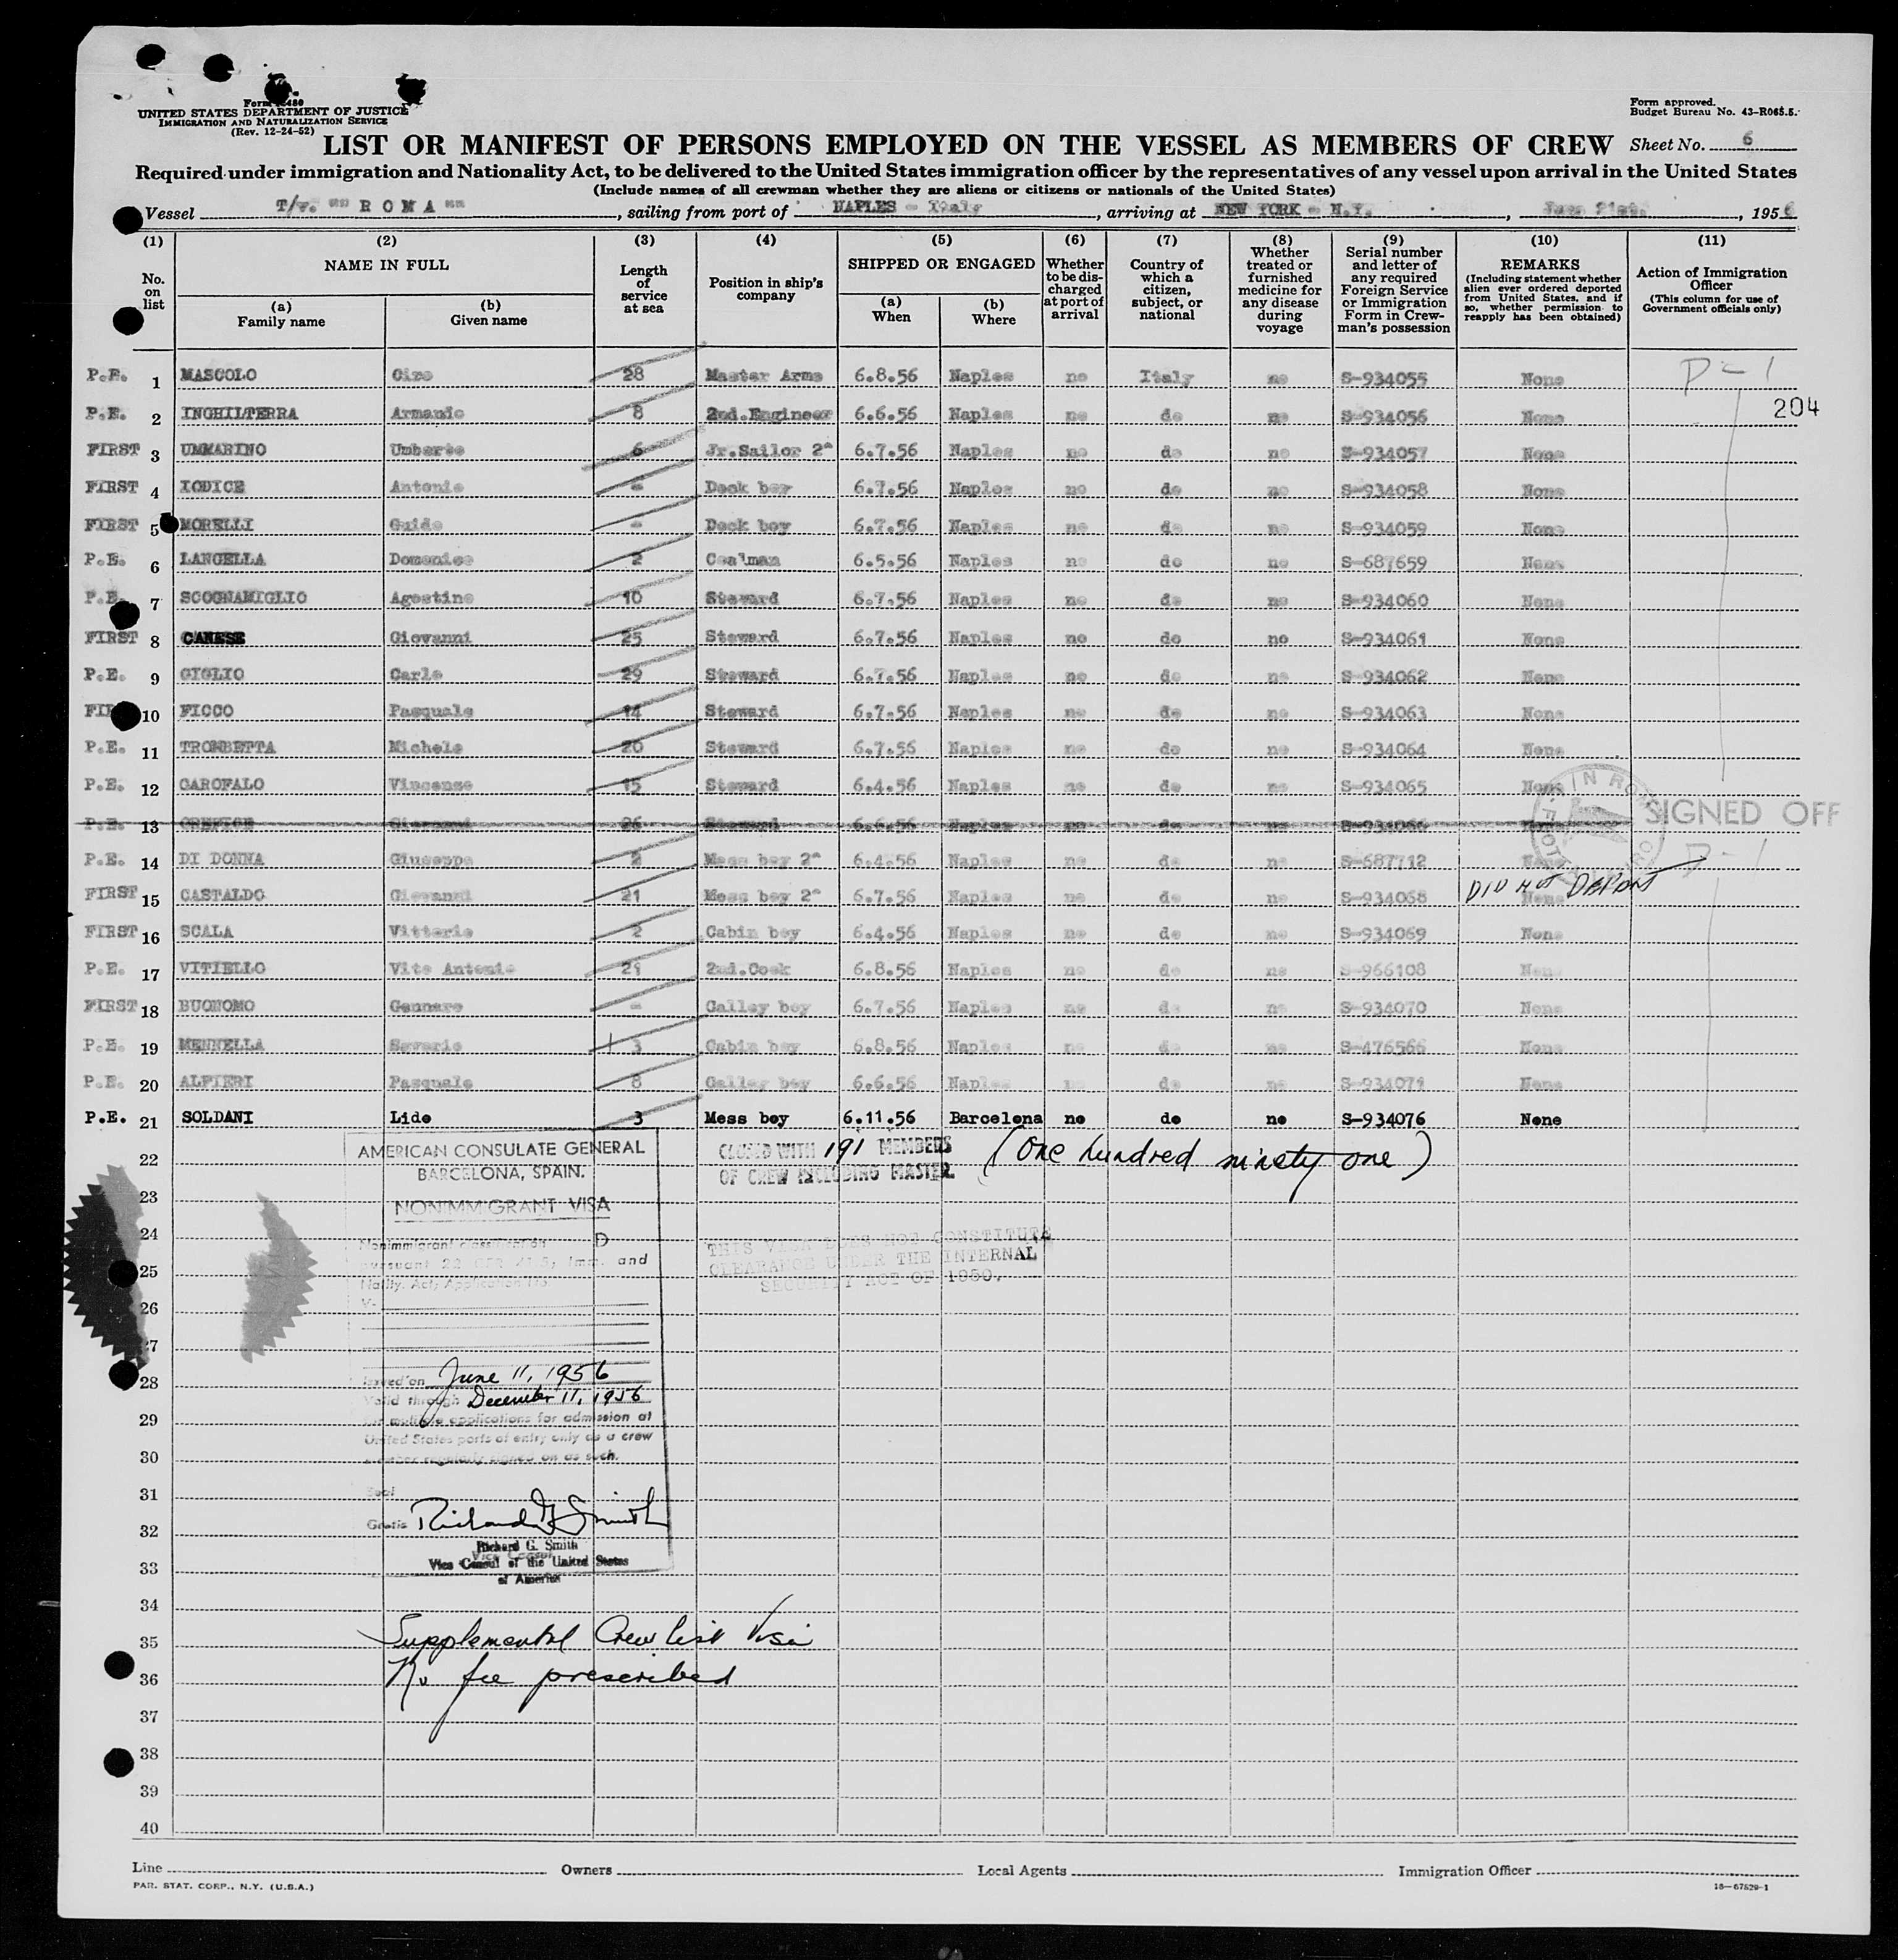 Form approved.
Budget Bureau No. 43-R065.5.
UNITED STATES DEPARTMENT OF JUSTICE
IMMIGRATION AND NATURALIZATION SERVICE
(Rev. 12-24-52)
LIST OR MANIFEST OF PERSONS EMPLOYED ON THE VESSEL AS MEMBERS OF CREW Sheet No. 6
Required under immigration and Nationality Act, to be delivered to the United States immigration officer by the representatives of any vessel upon arrival in the United States
(Include names of all crewman whether they are aliens or citizens or nationals of the United States)
Vessel "ROMA", sailing from port of NAPLES - Italy, arriving at NEW YORK - N.Y., June 21st., 1956
(1) (2) (3) (4) (5) (6) (7) (8) (9) (10) (11)
No. on list
NAME IN FULL
(a) Family name
(b) Given name
Length of service at sea
Position in ship's company
SHIPPED OR ENGAGED
(a) When
(b) Where
Whether to be discharged at port of arrival
Country of which a citizen, subject, or national
Whether treated or furnished medicine for any disease during voyage
Serial number and letter of any required Foreign Service or Immigration Form in Crewman's possession
REMARKS
(Including statement whether alien ever ordered deported from United States, and if so, whether permission to reapply has been obtained)
Action of Immigration Officer
(This column for use of Government officials only)
P.E. 1 MASCOLO Ciro 28 Master Arms 6.8.56 Naples no Italy no S-934055 None D-1
204
P.E. 2 INGHILTERRA Armando 8 2nd.Engineer 6.6.56 Naples no do no S-934056 None
FIRST 3 UMMARINO Umberto 6 Jr.Sailor 2ª 6.7.56 Naples no do no S-934057 None
FIRST 4 IODICE Antonio - Deck boy 6.7.56 Naples no do no S-934058 None
FIRST 5 MORELLI Guido - Deck boy 6.7.56 Naples no do no S-934059 None
P.E. 6 LANGELLA Domenico 2 Coalman 6.5.56 Naples no do no S-687659 None
P.E. 7 SCOGNAMIGLIO Agostino 10 Steward 6.7.56 Naples no do no S-934060 None
FIRST 8 CANESE Giovanni 25 Steward 6.7.56 Naples no do no S-934061 None
P.E. 9 GIGLIO Carlo 29 Steward 6.7.56 Naples no do no S-934062 None
10 FICCO Pasquale 14 Steward 6.7.56 Naples no do no S-934063 None
P.E. 11 TROMBETTA Michele 20 Steward 6.7.56 Naples no do no S-934064 None
P.E. 12 GAROFALO Vincenzo 15 Steward 6.4.56 Naples no do no S-934065 None
P.E. 13 OREFICE Giovanni 26 Steward 6.6.56 Naples no do no S-934066 None SIGNED OFF
P.E. 14 DI DONNA Giuseppe 2 Mess boy 2ª 6.4.56 Naples no do no S-687712 None D-1
DID NOT DEPART
FIRST 15 CASTALDO Giovanni 21 Mess boy 2ª 6.7.56 Naples no do no S-934068 None
FIRST 16 SCALA Vittorio 2 Cabin boy 6.4.56 Naples no do no S-934069 None
P.E. 17 VITIELLO Vito Antonio 21 2nd.Cook 6.8.56 Naples no do no S-966108 None
FIRST 18 BUONOMO Gennaro - Galley boy 6.7.56 Naples no do no S-934070 None
P.E. 19 MENNELLA Saverio 3 Cabin boy 6.8.56 Naples no do no S-476566 None
P.E. 20 ALFIERI Pasquale 8 Galley boy 6.6.56 Naples no do no S-934071 None
P.E. 21 SOLDANI Lido 3 Mess boy 6.11.56 Barcelona no do no S-934076 None
22
23
24
25
26
27
28
29
30
31
32
33
34
35
36
37
38
39
40
AMERICAN CONSULATE GENERAL
BARCELONA, SPAIN.
NONIMMIGRANT VISA
Nonimmigrant classification D
pursuant 22 CFR 41.5, Imm. and
Natlty. Act; Application No.
V-
Issued on June 11, 1956
Valid through December 11, 1956
for multiple applications for admission at
United States ports of entry only as a crew
member regularly signed on as such.
Seal
Gratis Richard G Smith
Richard G. Smith
Vice Consul of the United States
of America
CLOSED WITH 191 MEMBERS
OF CREW INCLUDING MASTER.
(One hundred ninety one)
THIS VISA DOES NOT CONSTITUTE
CLEARANCE UNDER THE INTERNAL
SECURITY ACT OF 1950.
Supplemental Crew list Visa
No fee prescribed
Line Owners Local Agents Immigration Officer
PAR. STAT. CORP., N.Y. (U.S.A.)
16—67529-1